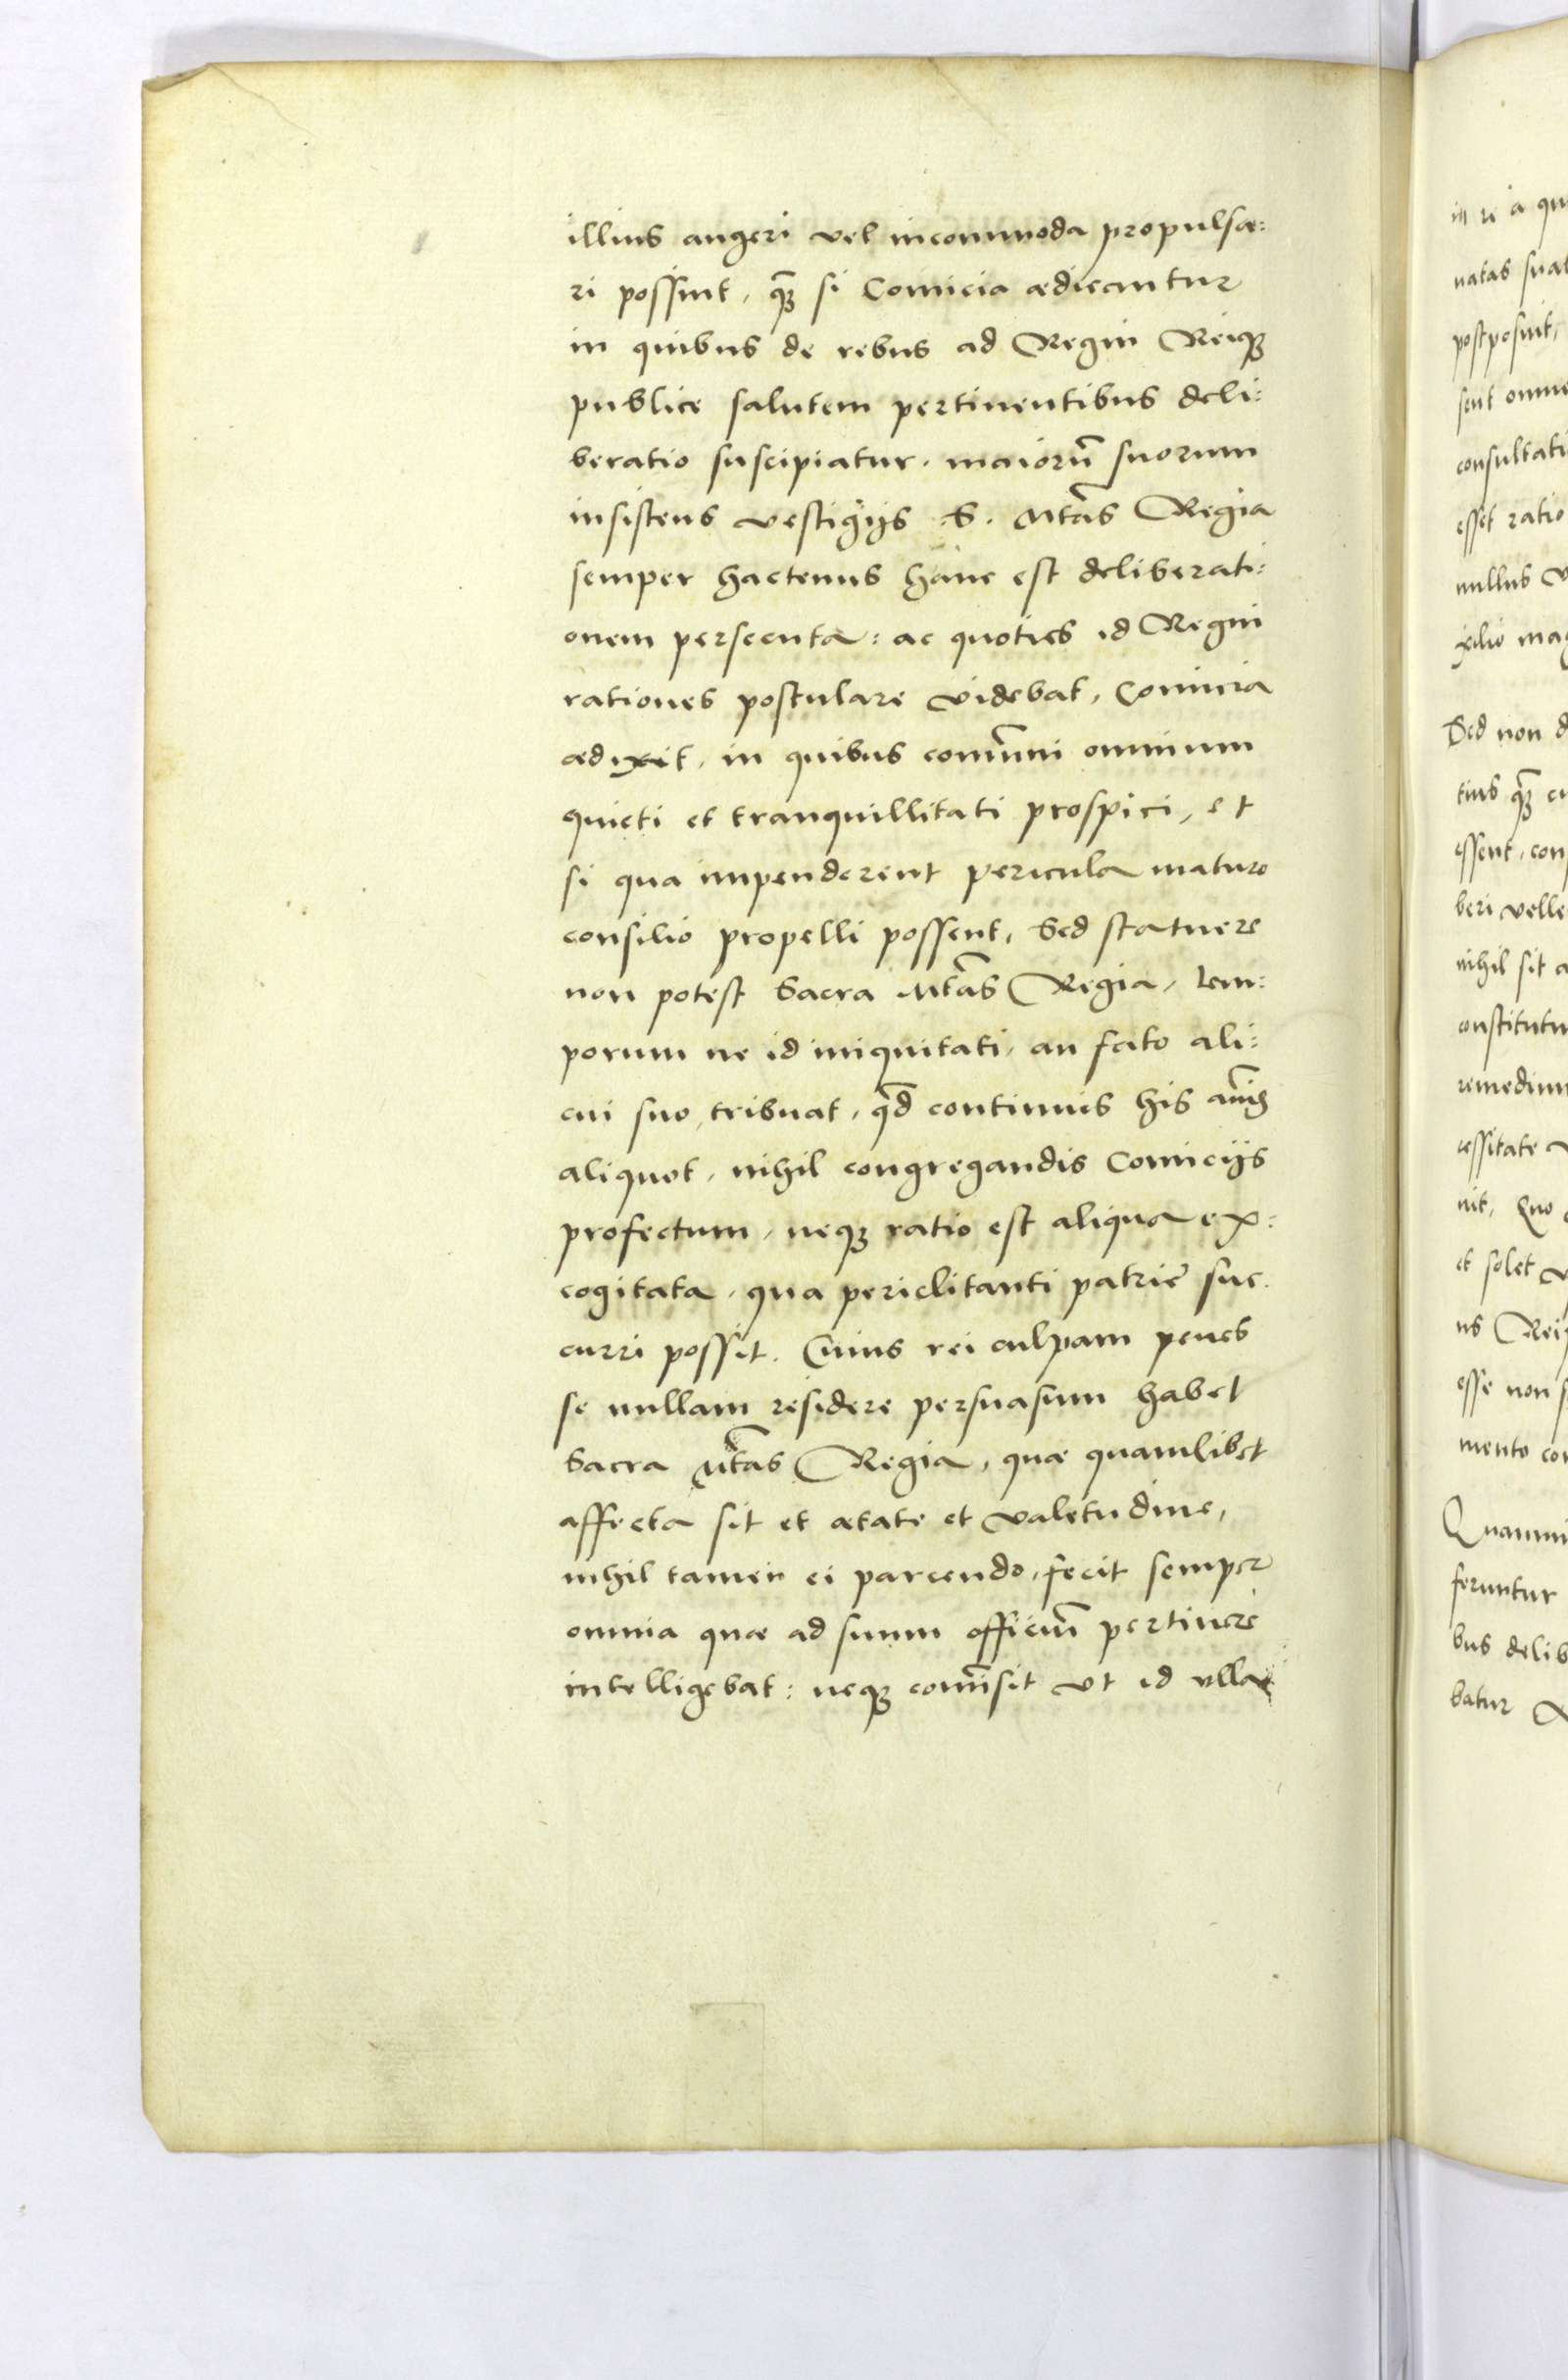 illius augeri vel incommoda propulsa:
ri possint, qȝ si Comicia ædicantur
in quibus de rebus ad Regni Reiqȝ
publice salutem pertinentibus deli:
beratio suscipiatur. maiorũ suorum
insistens vestigijs S. Mtãs Regia
semper hactenus hanc est deliberati:
onem persecuta: ac quoties id Regni
rationes postulare videbat, Comicia
ædixit, in quibus comũni omnium
quieti et tranquillitati prospici, et
si qua impenderent pericula maturo
consilio propelli possent, Sed statuere
non potest Sacra Mtãs Regia, tem:
porum ne id iniquitati, an fato ali:
cui suo tribuat, qđ continuis his añis
aliquot, nihil congregandis Comicijs
profectum, neqȝ ratio est aliqua ex:
cogitata, qua periclitanti patrie suc.
curri possit. Cuius rei culpam penes
se nullam residere persuasum habet
Sacra Mtãs Regia, quæ quamlibet
affecta sit et ætate et valetudine,
nihil tamen ei parcendo, fecit semper
omnia quæ ad suum officiũ pertinere
intelligebat: neqȝ com̃isit vt id vlla
in re a qu
uatas sua
postposuit,
sent omne
consultati
esset ratio
nullus v
xilio mag
Sed non d
tius qȝ cu
essent, con
beri velle
nihil sit a
constitutu
remedium
cessitate
uit, Quo
et solet v
us Rei
esse non
mento con
Quamui
feruntur
bus delib
batur